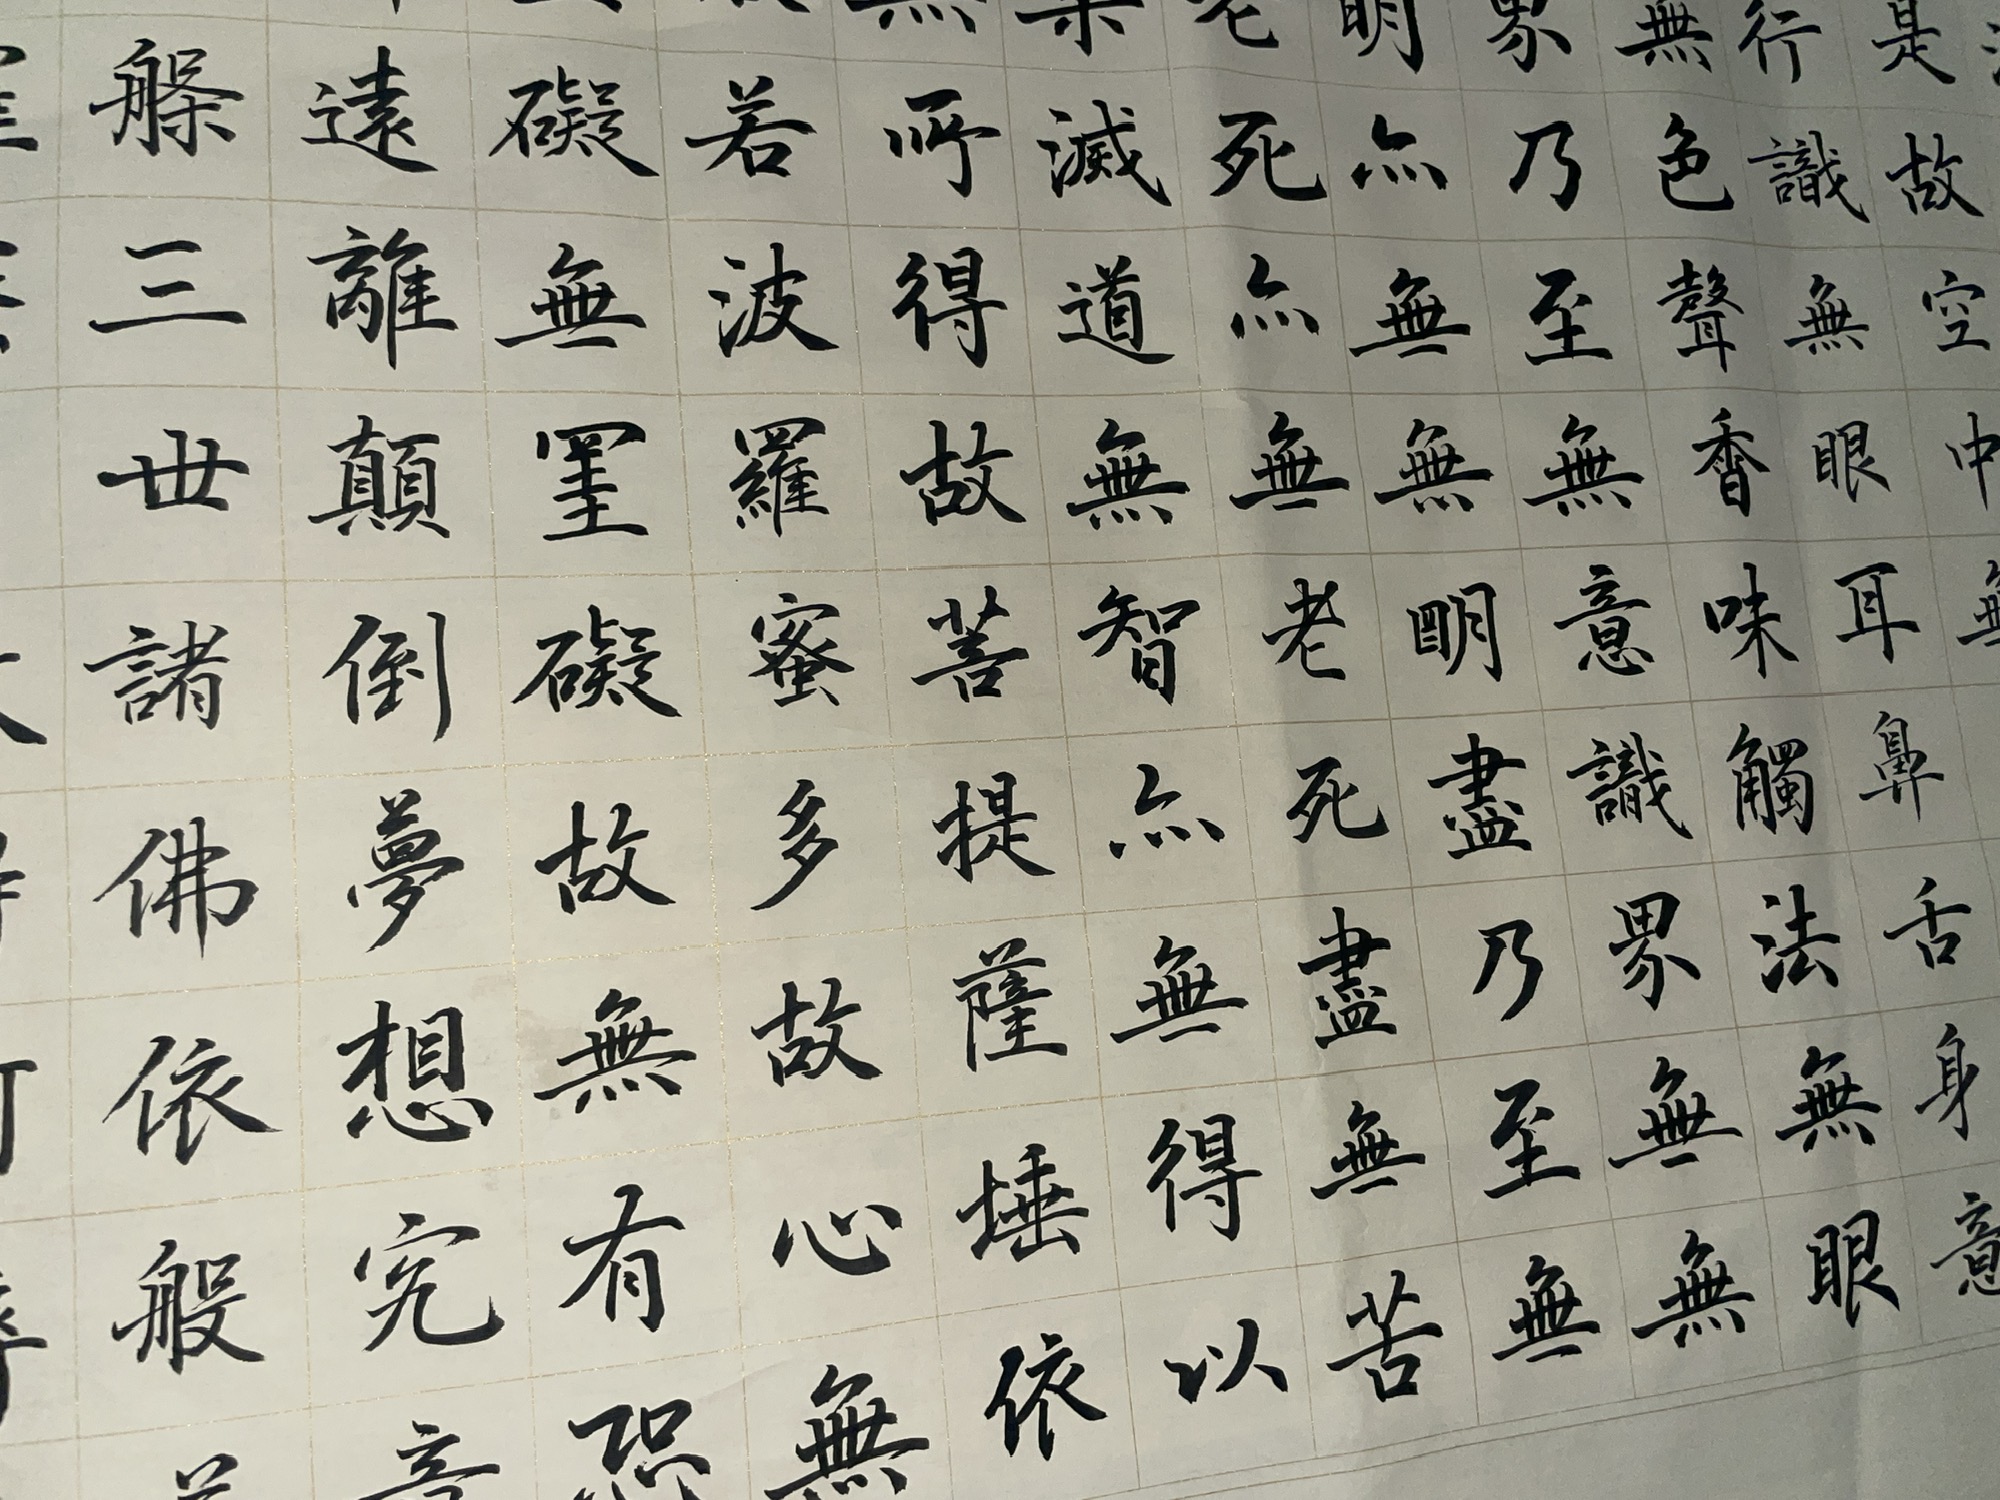 是故空中無
行識無眼耳鼻舌身意
無色聲香味觸法無眼
界乃至無意識界無無
明亦無無明盡乃至無
老死亦無老死盡無苦
滅道無智亦無得以
無所得故菩提薩埵依
若波羅蜜多故心無
礙無罣礙故無有恐
遠離顛倒夢想究
槃三世諸佛依般